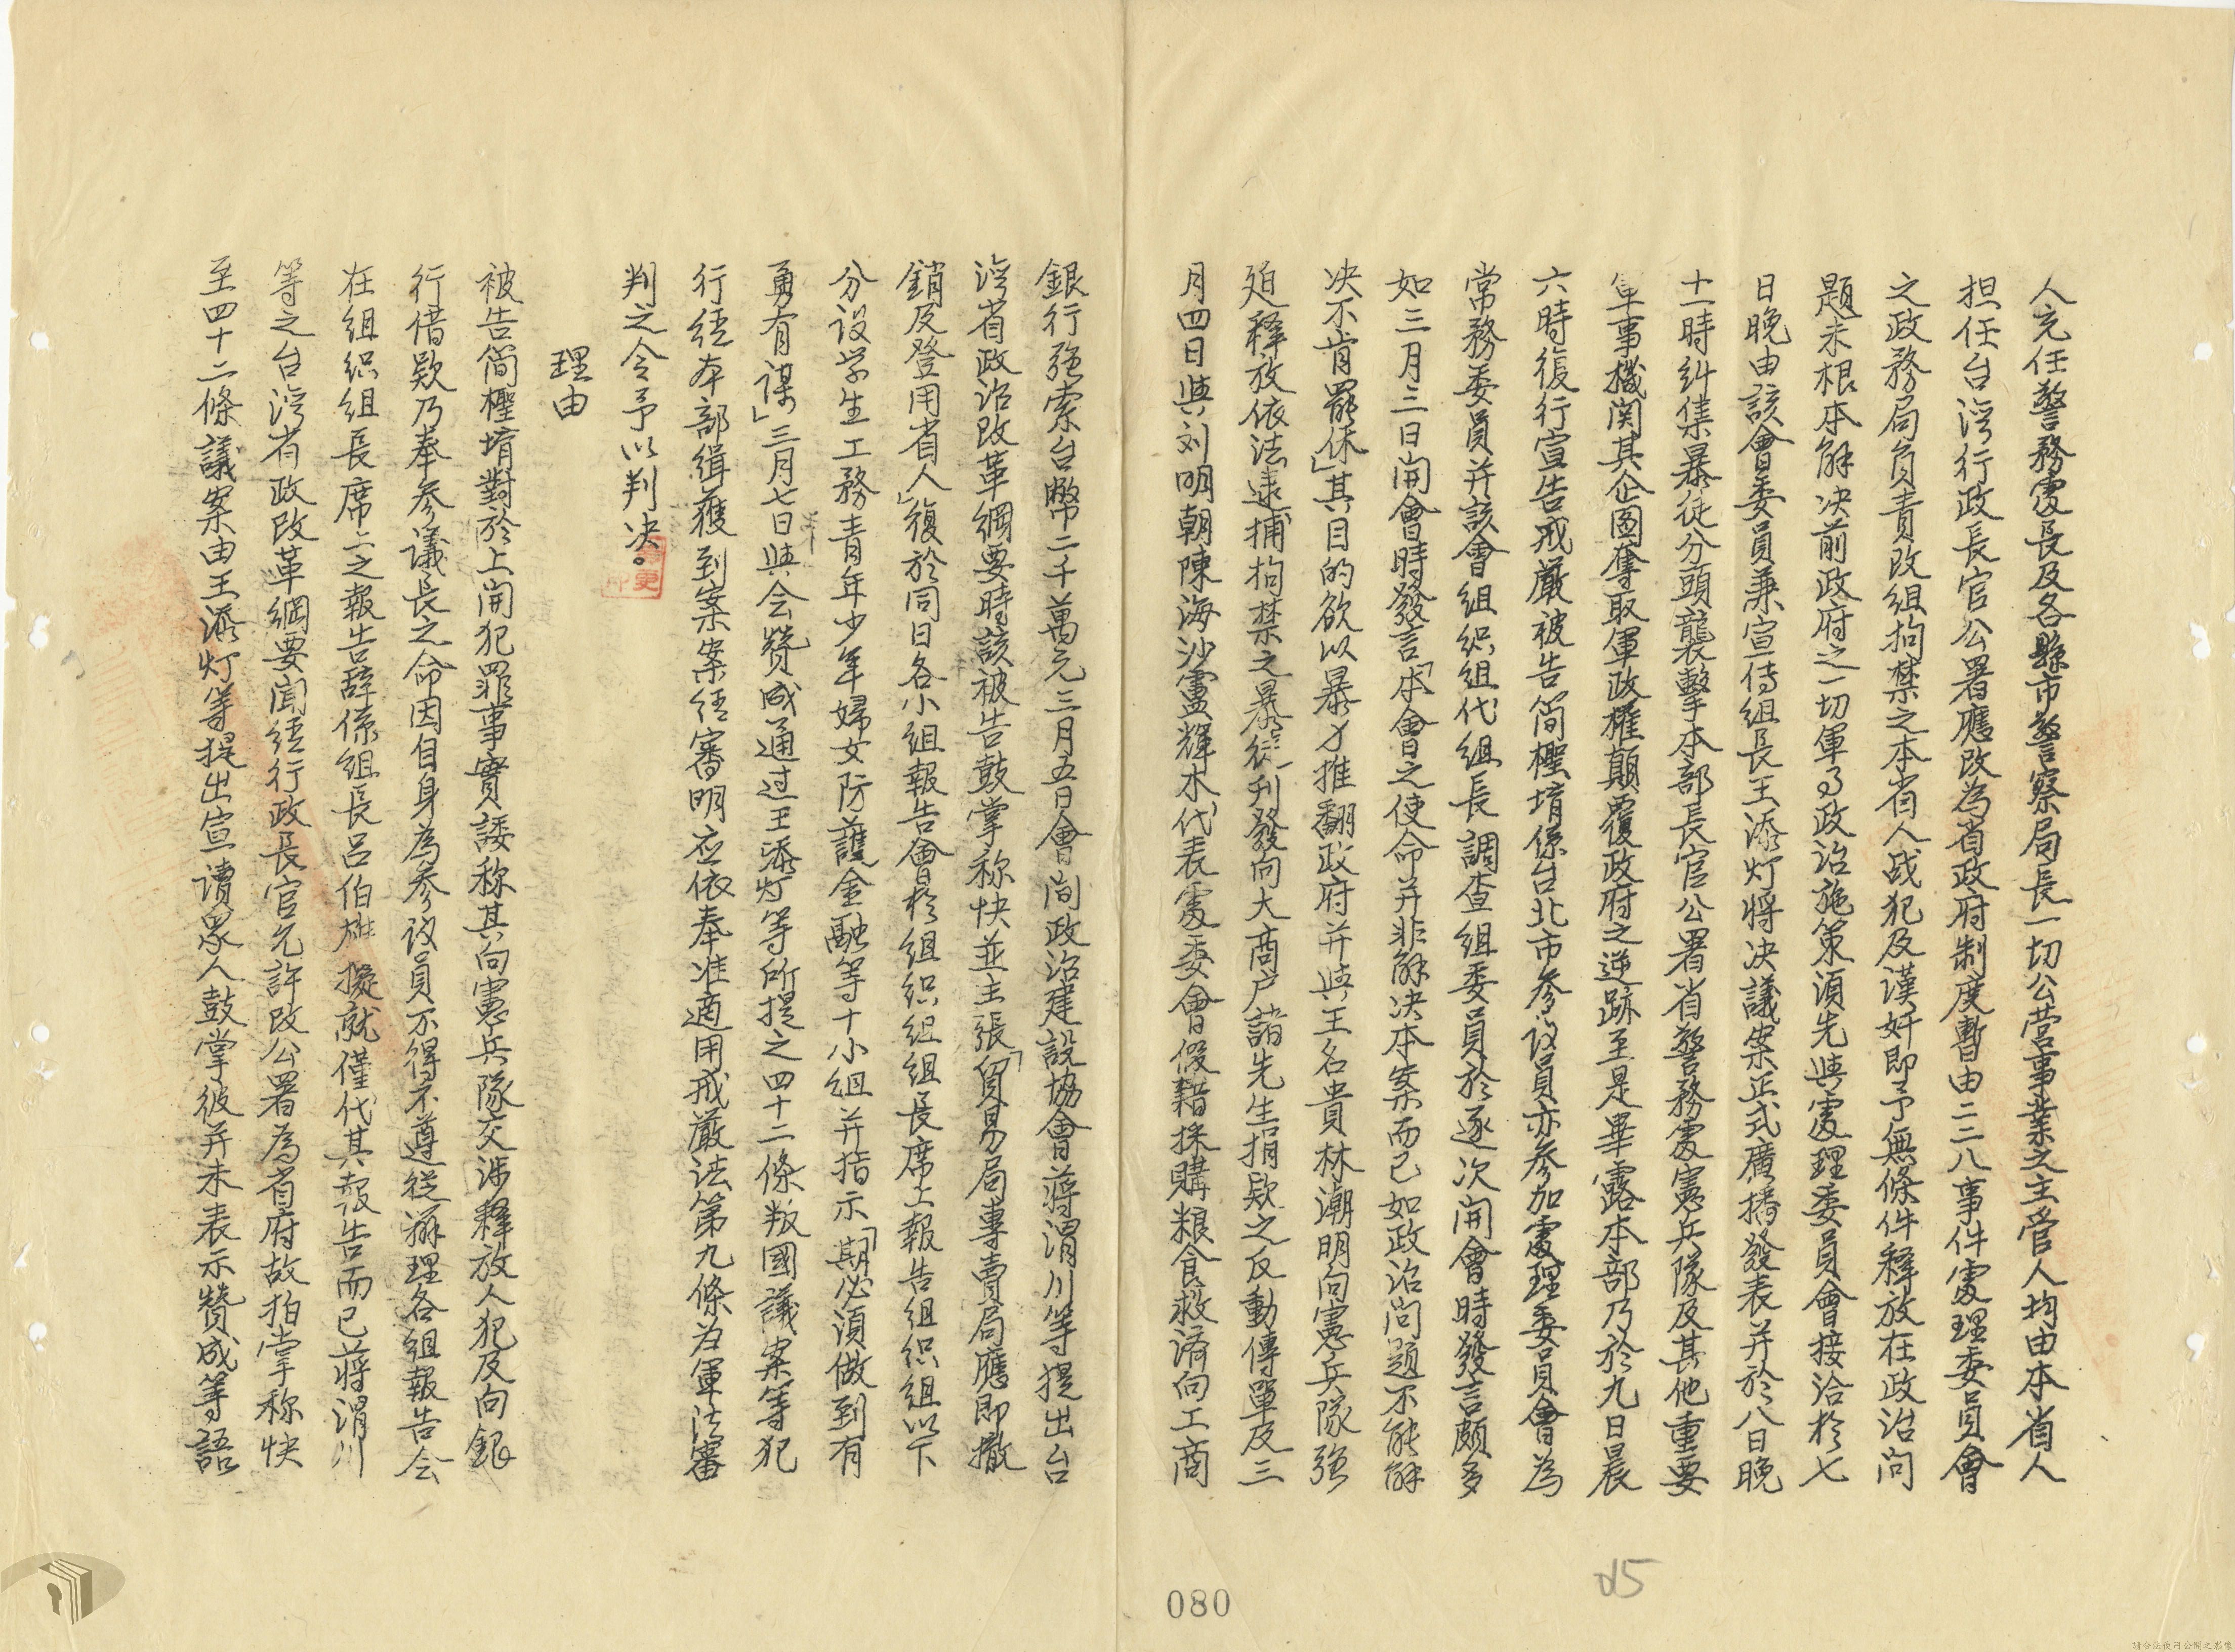 人充任警務處長及各縣市警察局長一切公营事業之主管人均由本省人
担任台湾行政長官公署應改為省政府制度暫由二二八事件處理委員會
之政務局負責改組拘禁之本省人战犯及漢奸即予無條件释放在政治问
題未根本解决前政府之一切軍事政治施策須先與處理委員會接洽於七
日晚由該會委員兼宣传組長王添灯将决議案正式廣播發表并於八日晚
十一時糾集暴徒分頭襲擊本部長官公署省警務處憲兵隊及其他重要
軍事機関其企圖奪取軍政權顛覆政府之逆跡至是畢露本部乃於九日晨
六時復行宣告戒嚴被告简檉堉係台北市参议員亦参加處理委員會為
常務委員并該會組织組代組長調查組委員於逐次開會時發言頗多
如三月三日開會時發言「本會之使命并非解决本案而已如政治问題不能解
决不肯罷休」其目的欲以暴力推翻政府并與王名貴林潮明向憲兵隊強
迫释放依法逮捕拘禁之暴徒刊發向大商户諸先生捐欵之反動傳單及三
月四日與刘明朝陳海沙盧輝木代表處委會假藉採購粮食救济向工商
銀行强索台幣二千萬元三月五日會间政治建設協會蒋渭川等提出台
湾省政治改革綱要時該被告鼓掌称快並主張「貿易局專賣局應即撤
銷及登用省人」復於同日各小組報告會於組织組組長席上報告組织組以下
分设学生工務青年少年婦女防護金融等十小組并指示「期必須做到有
勇有謀」三月七日與会赞成通过王添灯等所提之四十二條叛國議案等犯
行經本部緝獲到案案經審明应依奉准適用戒嚴法第九條為軍法審
判之令予以判决。
理由
被告简檉堉對於上開犯罪事實諉称其向憲兵隊交涉释放人犯及向銀
行借欵乃奉参議長之命因自身為参议員不得不遵從辦理各組報告会
在組织組長席上之報告辞係組長呂伯雄擬就僅代其報告而已蒋渭川
等之台湾省政改革綱要聞經行政長官允許改公署為省府故拍掌称快
至四十二條議案由王添灯等提出宣讀眾人鼓掌彼并未表示赞成等語
080
请合法使用公開之影像